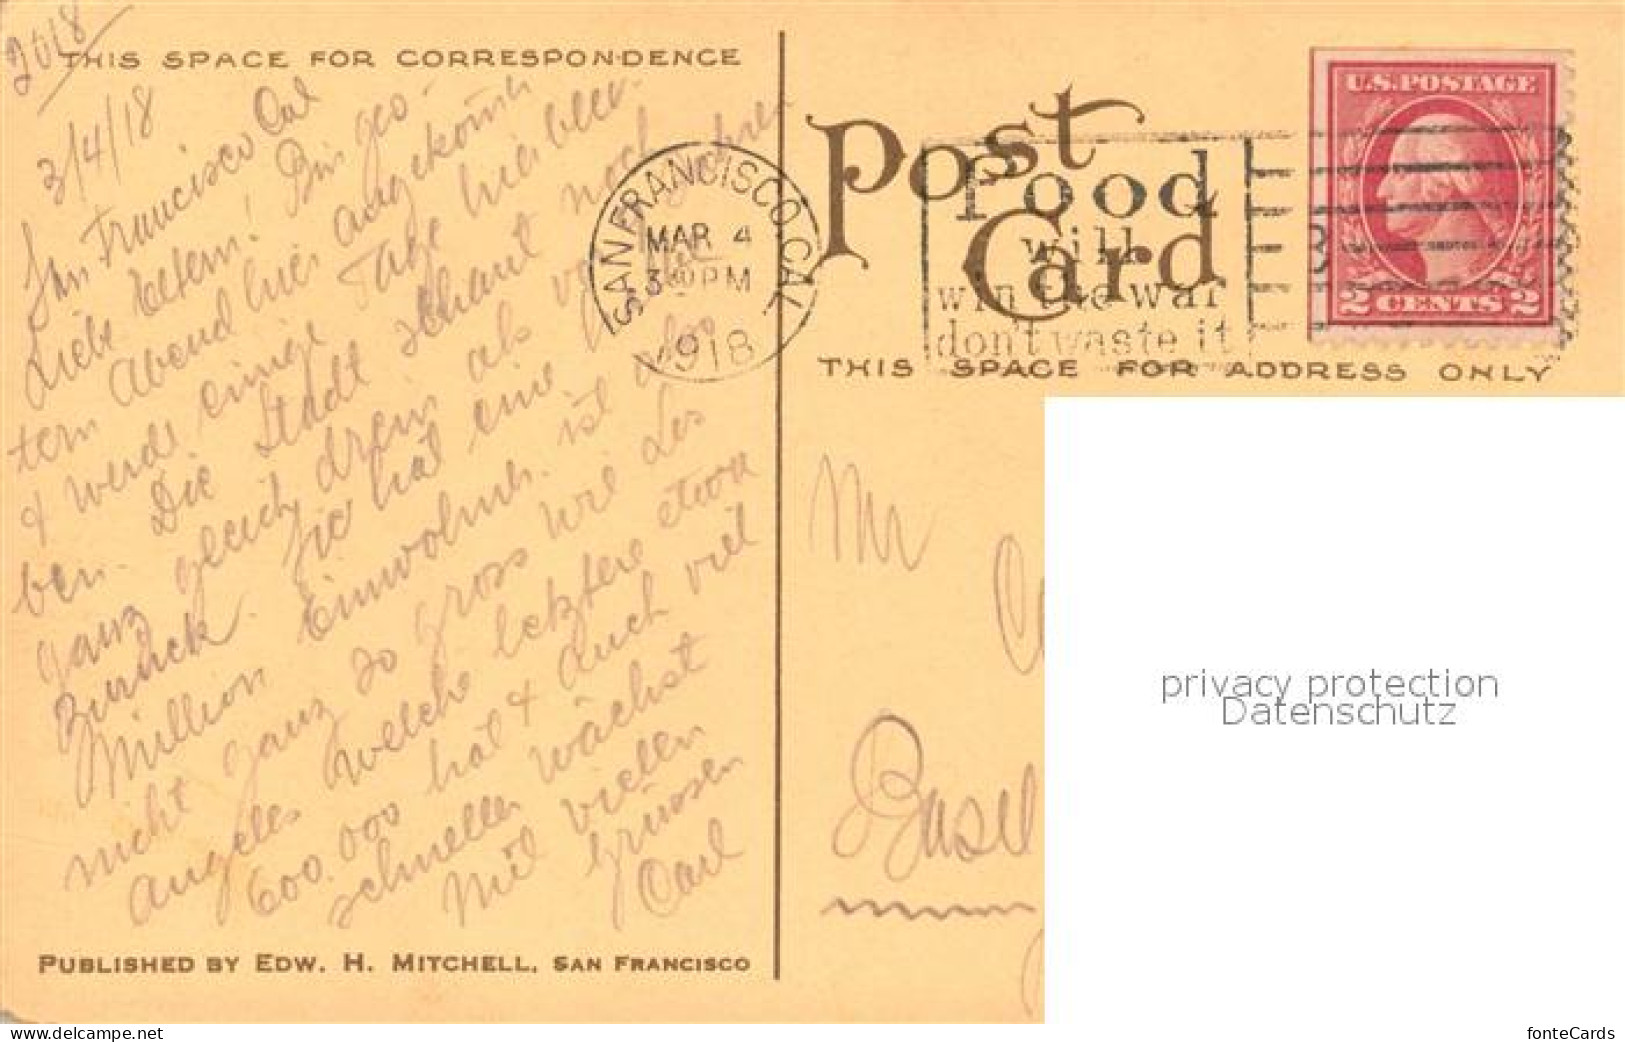 2018
THIS SPACE FOR CORRESPONDENCE
3/4/18
San Francisco Cal
Liebe Eltern! Bin ges-
tern Abend hier angekomm
& werde einige Tage hier blei-
ben. Die Stadt schaut noch
ganz gleich drein als vor
Zurück. Sie hat eine
Million Einwohner. ist also
nicht ganz so gross wie Los
Angeles welche letztere etwa
600.000 hat & auch viel
schneller wächst
Mit vielen
Grüssen
Carl
PUBLISHED BY EDW. H. MITCHELL, SAN FRANCISCO
Post
Card
SAN FRANCISCO, CAL.
MAR 4
3 30 PM
1918
Food
will
win the war
don't waste it
U.S. POSTAGE
2 CENTS 2
THIS SPACE FOR ADDRESS ONLY
Mr
Basel
privacy protection
Datenschutz
www.ansichtskarten-center.de
fonteCards